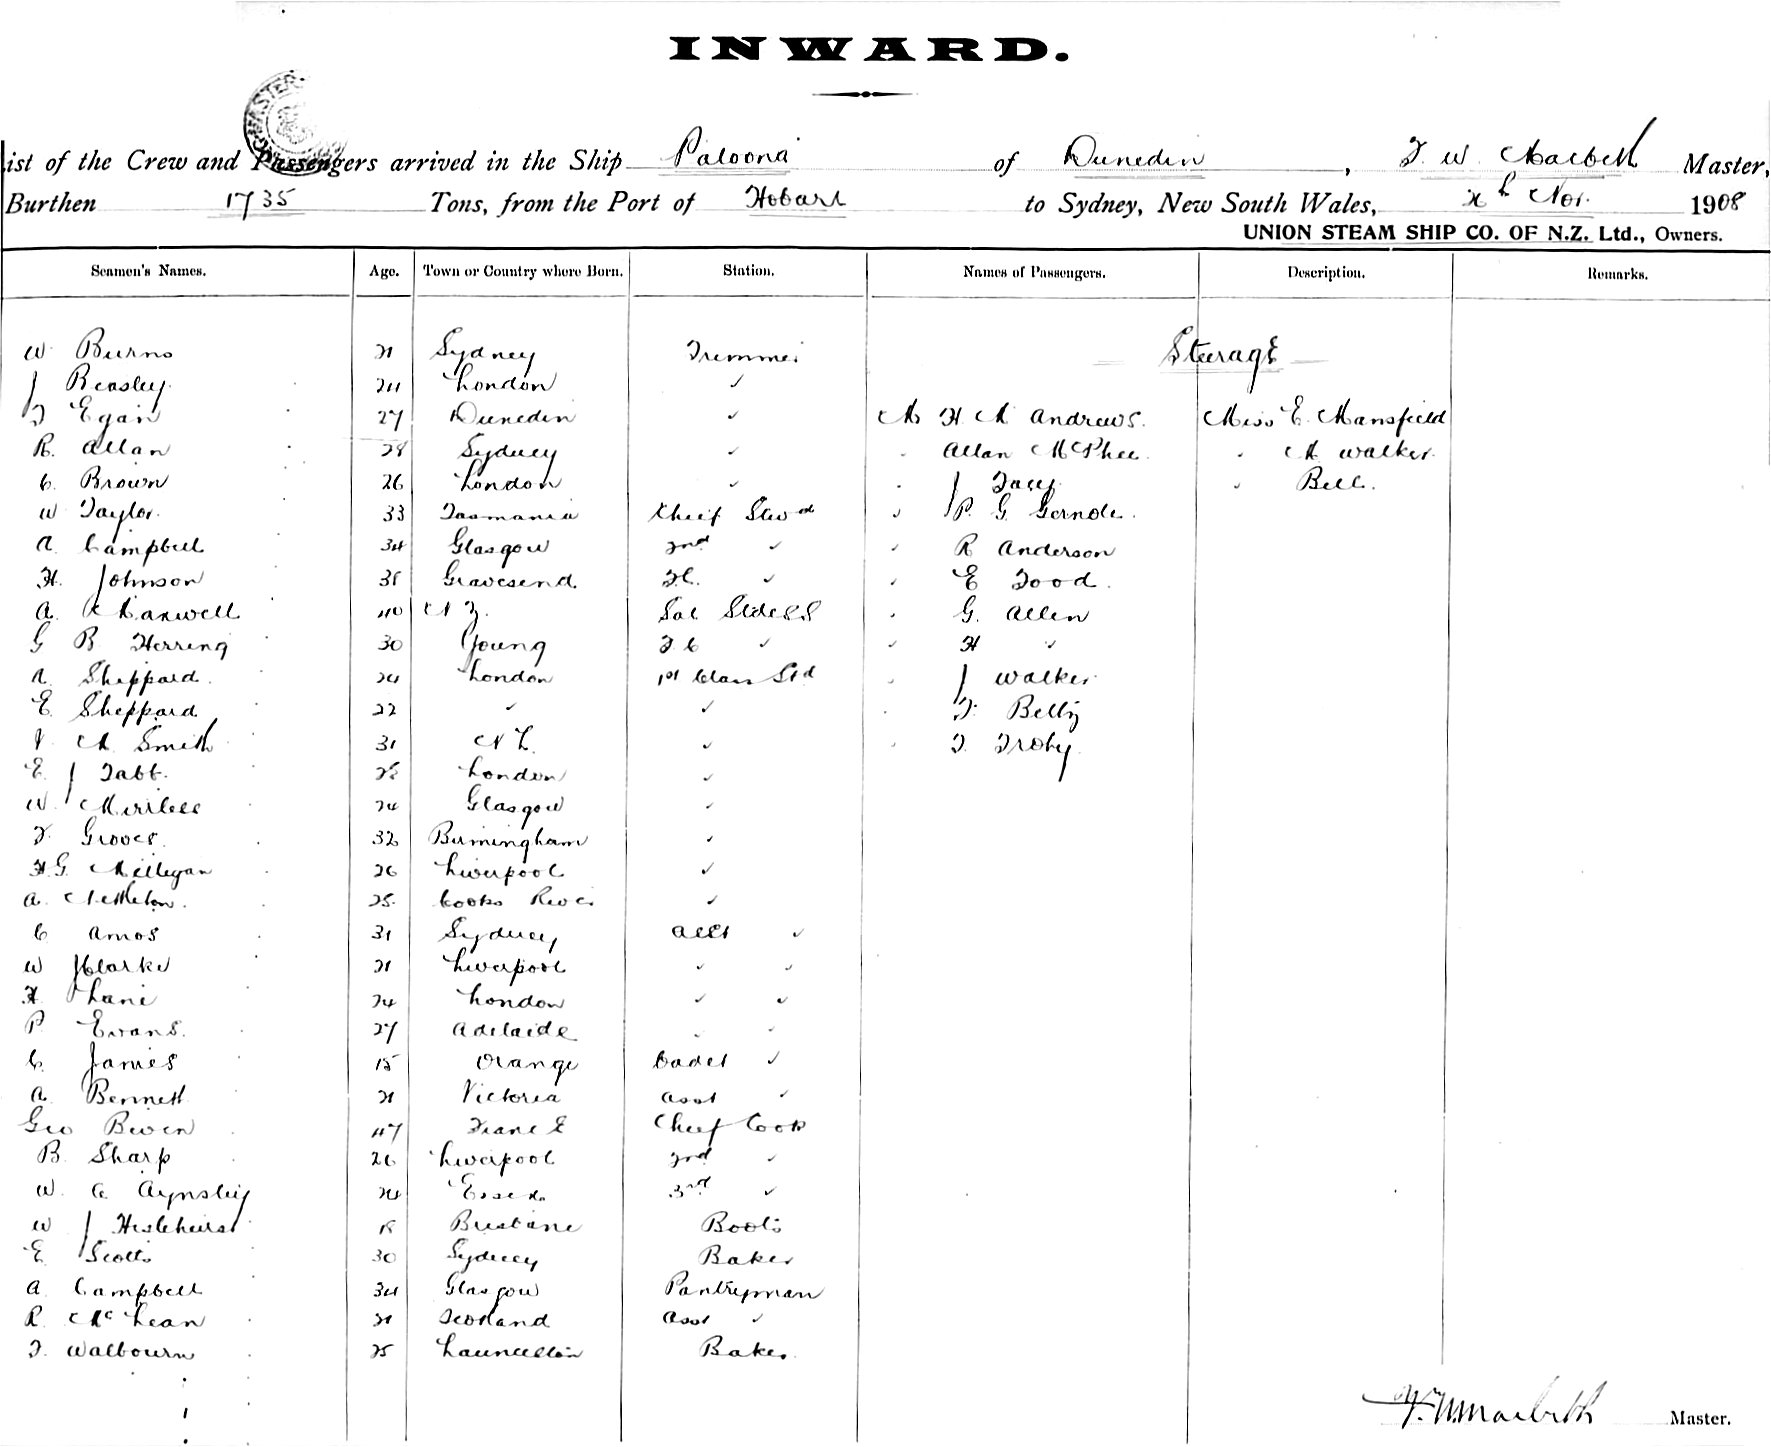 INWARD.
List of the Crew and Passengers arrived in the Ship Paloona of Dunedin, F. W. Macbeth Master,
Burthen 1735 Tons, from the Port of Hobart to Sydney, New South Wales, Nov. 1908
UNION STEAM SHIP CO. OF N.Z. Ltd., Owners.
Seamen's Names. Age. Town or Country where Born. Station. Names of Passengers. Description. Remarks.
W Burns 21 Sydney Trimmer Steerage
J Beasley. 24 London ✓
T Egan 27 Dunedin ✓ M H M Andrews. Miss E. Mansfield
R. Allan 28 Sydney ✓ Allan McPhee. M Walker.
C. Brown 26 London ✓ J Tacey. Bell.
W Taylor. 33 Tasmania Chief Stwd P. G. Gernde.
A. Campbell 34 Glasgow 2nd ✓ R Anderson
H. Johnson 38 Gravesend F.C. ✓ E Tood.
A. Maxwell 40 N Z. Sal Stdess G. Allen
G B Herring 30 Young F C ✓ H ✓
A. Sheppard. 24 London 1st Class Std J Walker
E. Sheppard 22 ✓ ✓ F. Betty
M. Smith 31 N Z. ✓ T. Troby.
E. J Tabb. 28 London ✓
W. Mirilees 24 Glasgow ✓
F. Groves. 32 Birmingham ✓
H.G. Milligan 26 Liverpool ✓
A. Nettleton. 25 Cooks River ✓
C Amos 31 Sydney ✓
W J Clarke 21 Liverpool ✓ ✓
H. Lane 24 London ✓ ✓
P Evans. 27 Adelaide ✓ ✓
C. James 15 Orange Cadet ✓
A. Bennett 21 Victoria Asst ✓
Geo Bowen 47 France Chief Cook
B. Sharp 26 Liverpool 2nd ✓
W. G. Aynsley 24 Essex 3rd ✓
W J Heslehurst 18 Brisbane Boots
E Scotts 30 Sydney Baker
A Campbell 34 Glasgow Pantryman
R. McLean 21 Scotland Asst ✓
F. Walbourn 25 Launceston Baker.
F. W. Macbeth Master.